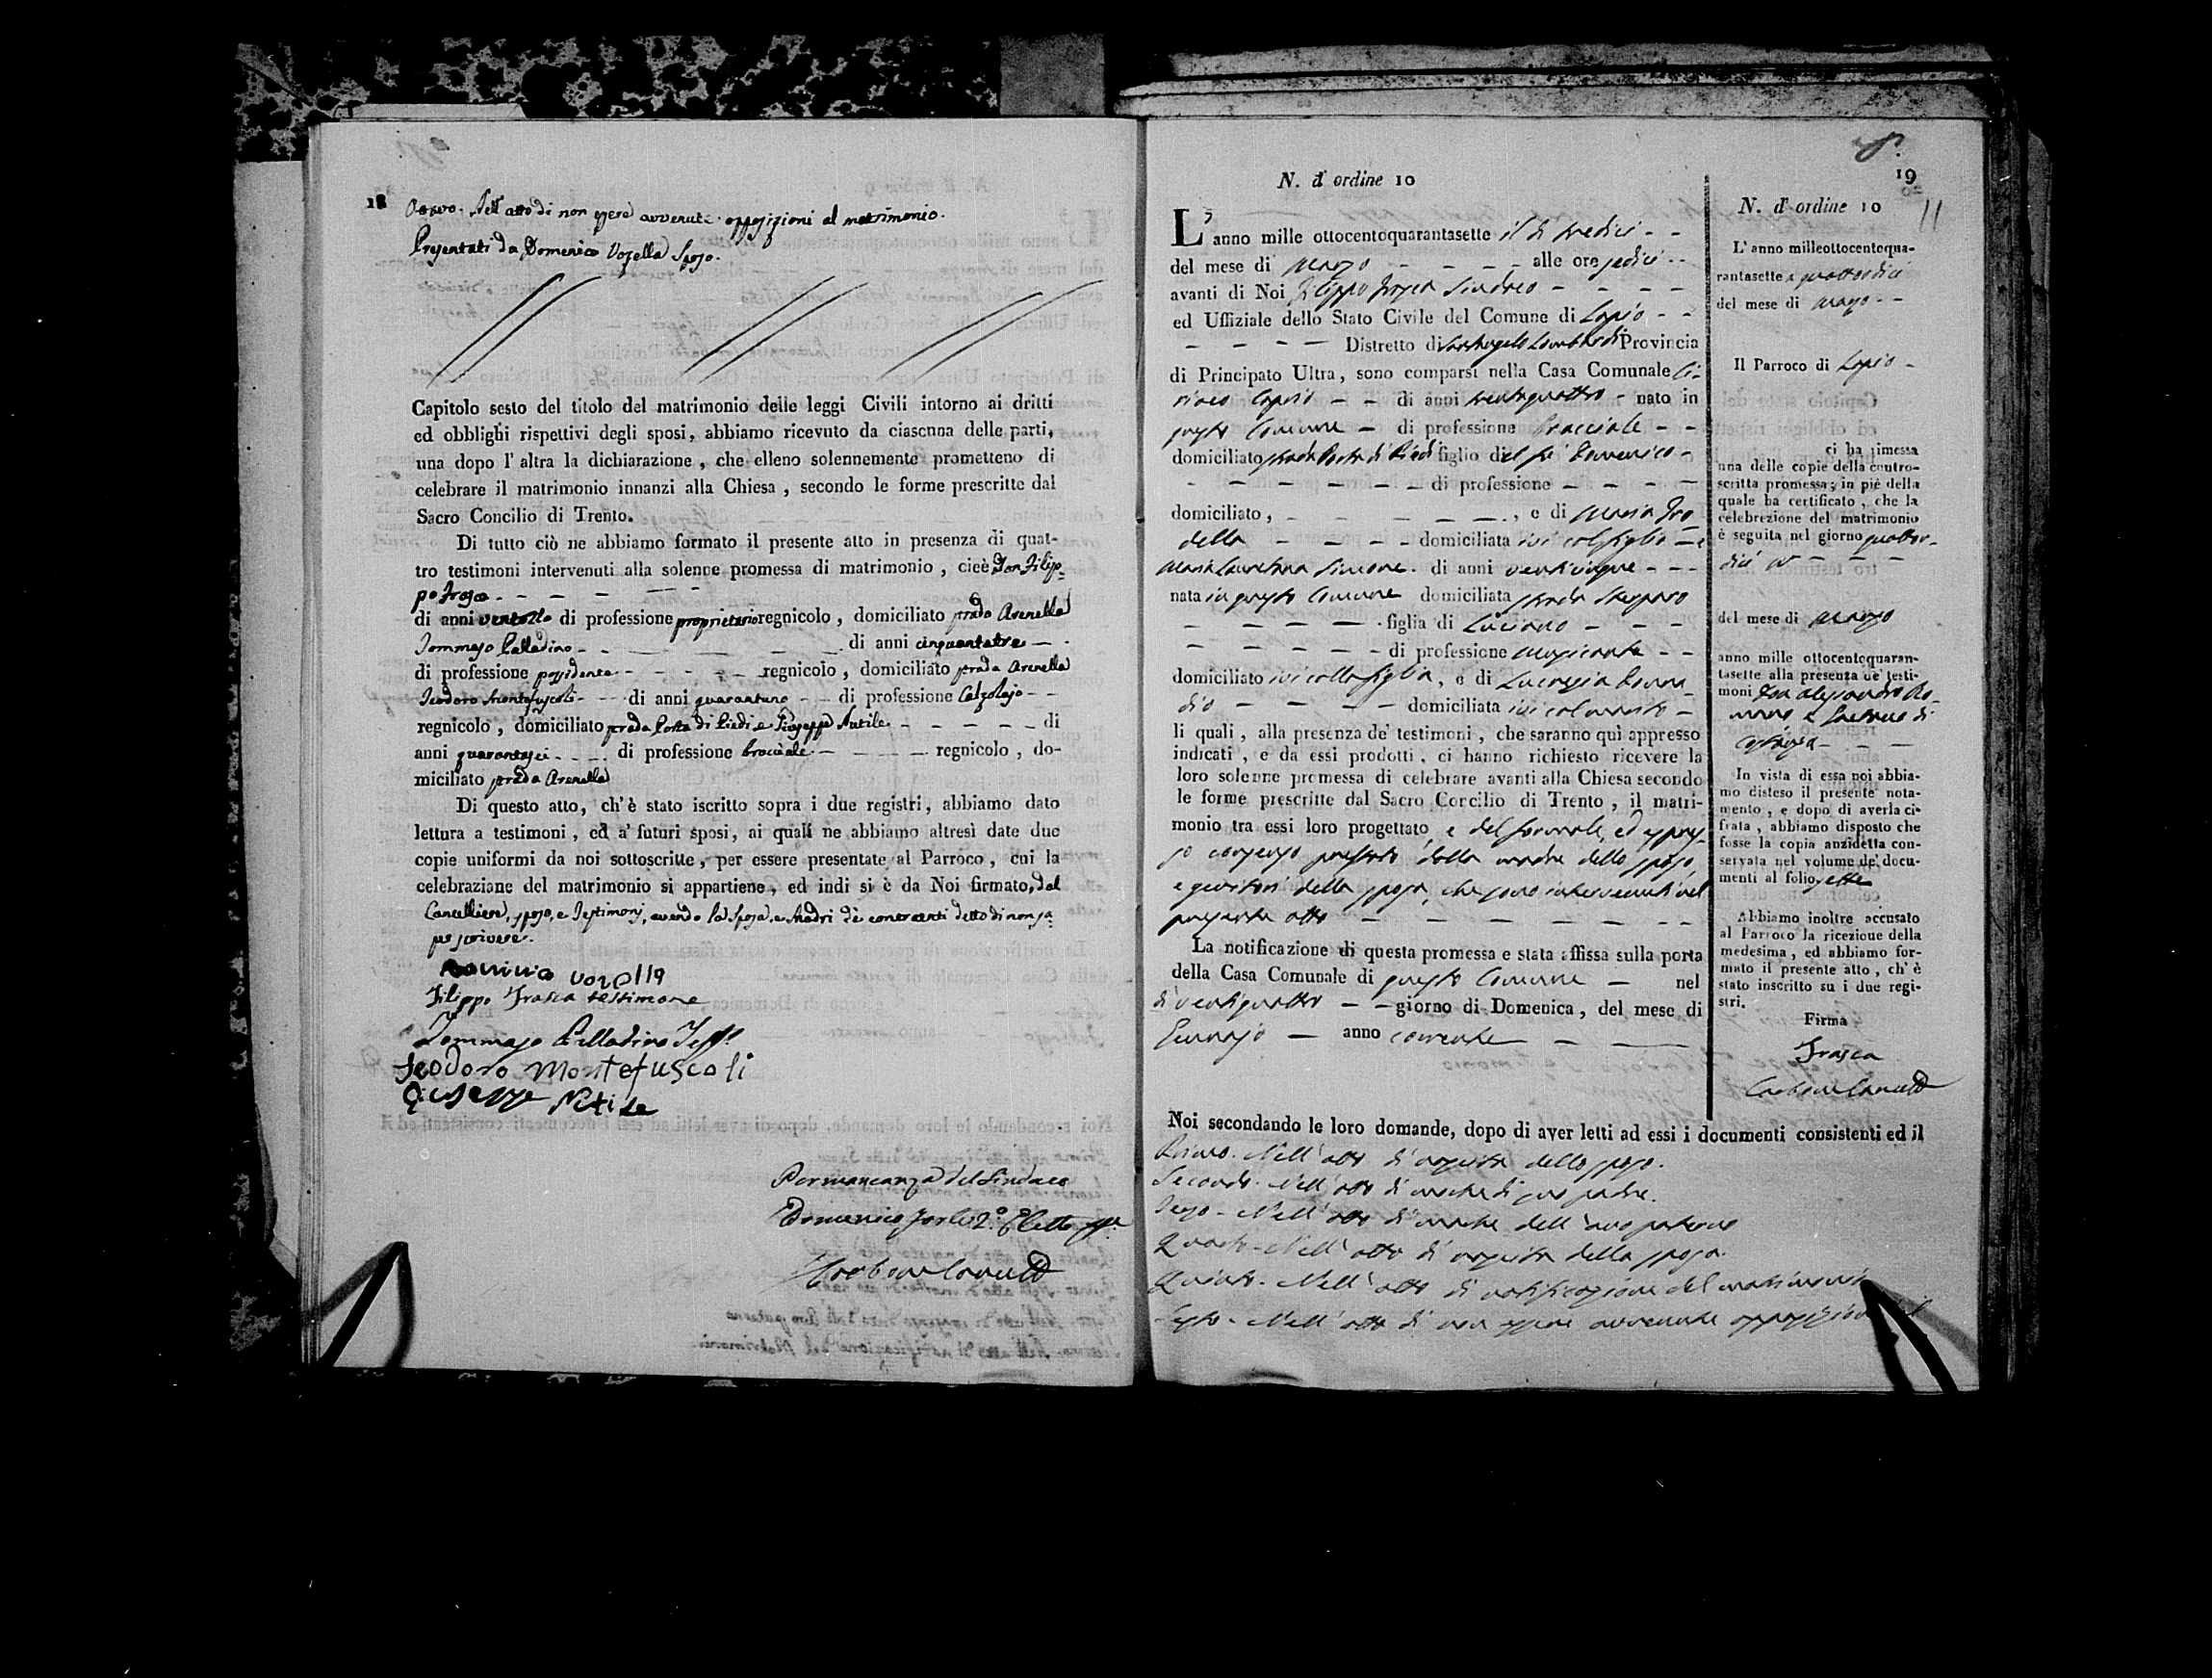 18
Ottavo. Nell'atto di non essere avvenute opposizioni al matrimonio.
Presentati da Domenico Vozella Sposo.
Capitolo sesto del titolo del matrimonio delle leggi Civili intorno ai dritti
ed obblighi rispettivi degli sposi, abbiamo ricevuto da ciascuna delle parti,
una dopo l'altra la dichiarazione, che elleno solennemente prometteno di
celebrare il matrimonio innanzi alla Chiesa, secondo le forme prescritte dal
Sacro Concilio di Trento.
Di tutto ciò ne abbiamo formato il presente atto in presenza di quat-
tro testimoni intervenuti alla solenne promessa di matrimonio, cioè Don Filip-
po Frasca
di anni ventotto di professione proprietario regnicolo, domiciliato strada Arenella
Tommaso Palladino di anni cinquantatre
di professione possidente regnicolo, domiciliato strada Arenella
Teodoro Montefuscoli di anni quarantuno di professione Calzolajo
regnicolo, domiciliato strada Porta di Piedi e Giuseppe Nutile di
anni quarantasei di professione bracciale regnicolo, do-
miciliato strada Arenella
Di questo atto, ch'è stato iscritto sopra i due registri, abbiamo dato
lettura a testimoni, ed a' futuri sposi, ai quali ne abbiamo altresì date due
copie uniformi da noi sottoscritte, per essere presentate al Parroco, cui la
celebraziane del matrimonio si appartiene, ed indi si è da Noi firmato, dal
Cancelliere, sposo, e Testimonj, avendo la Sposa, e Madri de' contraenti detto di non sa-
per scrivere.
Vozella
Filippo Frasca testimone
Tommaso Palladino Test.
Teodoro Montefuscoli
Giuseppe Nutile
Per mancanza del Sindaco
Domenico 2.º Eletto
19
N. d'ordine 10
L'anno mille ottocentoquarantasette il dì tredici
del mese di Marzo alle ore sedici
avanti di Noi Filippo Frasca Sindaco
ed Uffiziale dello Stato Civile del Comune di Lapio
Distretto di Santangelo Lombardi Provincia
di Principato Ultra, sono comparsi nella Casa Comunale Ci-
riaco Caprio di anni trentaquattro nato in
questo Comune di professione Bracciale
domiciliato strada Porta di Piedi figlio del fu Domenico
di professione
domiciliato, , e di Maria Iro
della domiciliata ivi col figlio e
Maria Laurenza Simone di anni venticinque
nata in questo Comune domiciliata strada
figlia di Luciano
di professione
domiciliato ivi colla figlia, e di Lucrezia Donna
dio domiciliata ivi col marito
li quali, alla presenza de' testimoni, che saranno quì appresso
indicati, e da essi prodotti, ci hanno richiesto ricevere la
loro solenne promessa di celebrare avanti alla Chiesa secondo
le forme prescritte dal Sacro Concilio di Trento, il matri-
monio tra essi loro progettato, e del formale, ed espres-
so consenso prestato dalla madre dello sposo,
e genitori della sposa, che sono intervenuti nel
presente atto
La notificazione di questa promessa e stata affissa sulla porta
della Casa Comunale di questo Comune nel
dì ventiquattro giorno di Domenica, del mese di
Gennajo anno corrente
N. d'ordine 10
11
L'anno milleottocentoqua-
rantasette a quattordici
del mese di Marzo
Il Parroco di Lapio
ci ha rimessa
una delle copie della contro-
scritta promessa; in piè della
quale ha certificato, che la
celebrezione del matrimonio
è seguita nel giorno quattor-
dici
del mese di Marzo
anno mille ottocentoquaran-
tasette alla presenza de' testi-
moni Don Alessandro Ro-
mano e Gaetano di
In vista di essa noi abbia-
mo disteso il presente nota-
mento, e dopo di averla ci-
frata, abbiamo disposto che
fosse la copia anzidetta con-
servata nel volume de' docu-
menti al folio sette
Abbiamo inoltre accusato
al Parroco la ricezione della
medesima, ed abbiamo for-
mato il presente atto, ch'è
stato inscritto su i due regi-
stri.
Firma
Frasca
Noi secondando le loro domande, dopo di aver letti ad essi i documenti consistenti ed il
Primo. Nell'atto di nascita dello sposo.
Secondo. Nell'atto di morte di suo padre.
Terzo. Nell'atto di morte dell'avo paterno
Quarto. Nell'atto di nascita della sposa.
Quinto. Nell'atto di notificazione del matrimonio
Sesto. Nell'atto di non essere avvenute opposizioni